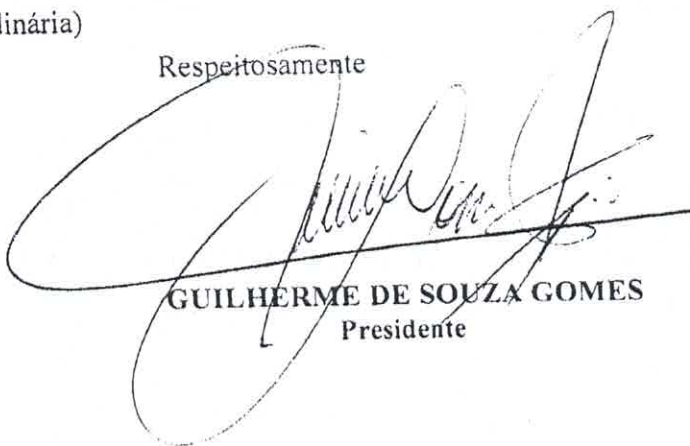 dinária)
Respeitosamente
GUILHERME DE SOUZA GOMES
Presidente